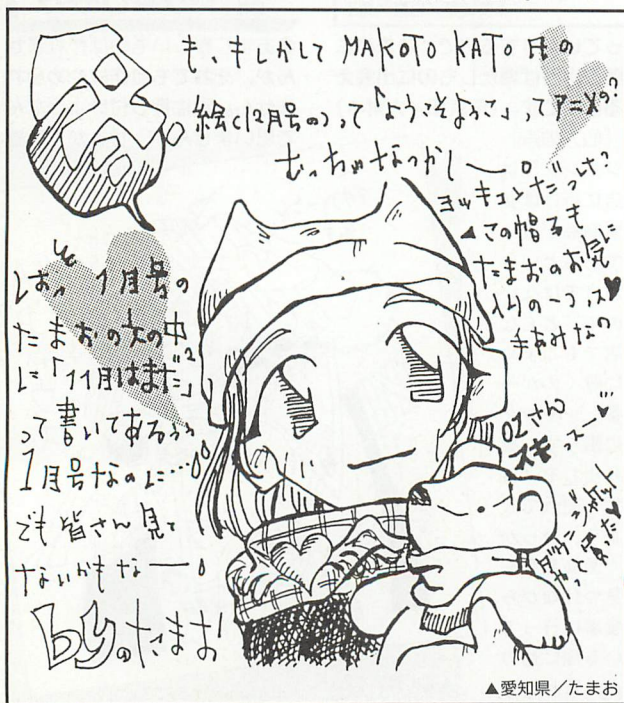 も、もしかして MAKOTO KATO氏の
絵(12月号の)って「ようこそようこ」ってアニメの?
むっちゃなつかしー。
ヨッキュンだっけ?
▲この帽子も
たまおのお気に
入りの一つっス♥
手あみなの
しおっと 1月号の
たまおの文の中
に「11月はまだ」
って書いてあるぅぅ
1月号なのに…
でも皆さん見て
ないかもなー。
01さん
スキっスー♥
ダウンジャケット
やっと買った♥
byのたまお
▲愛知県/たまお